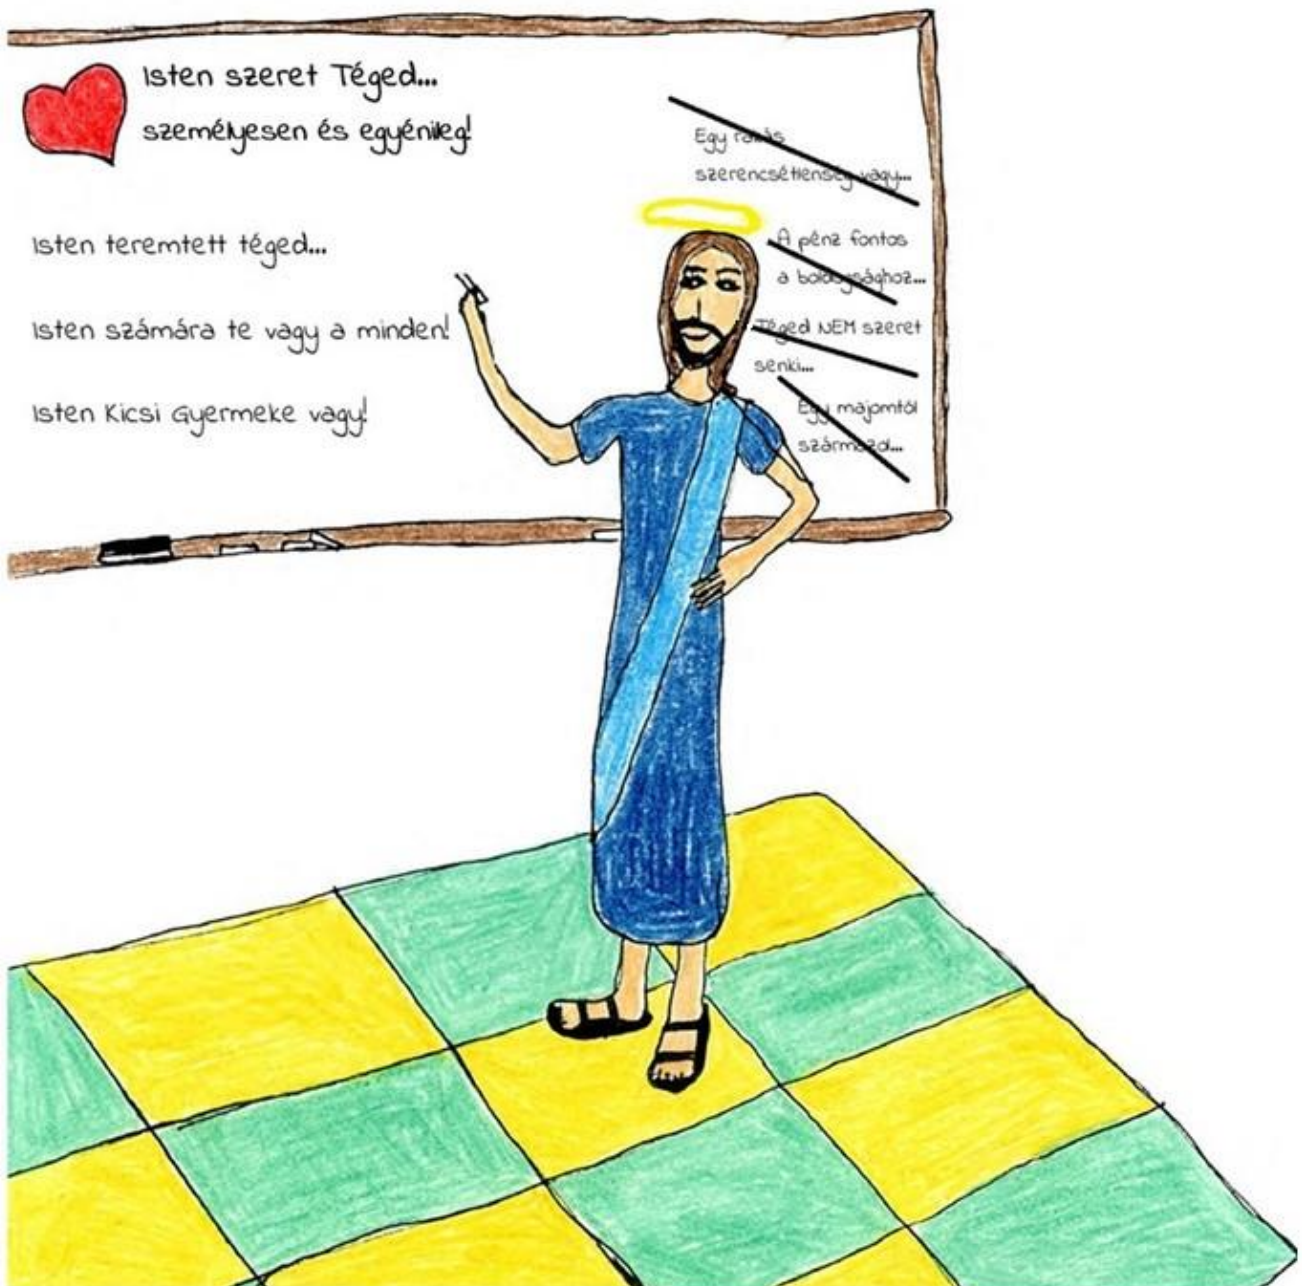 Isten szeret Téged...
személyesen és egyénileg!
Isten teremtett téged...
Isten számára te vagy a minden!
Isten Kicsi Gyermeke vagy!
Egy rakás
szerencsétlenség vagy...
A pénz fontos
a boldogsághoz...
Téged NEM szeret
senki...
Egy majomtól
származol...